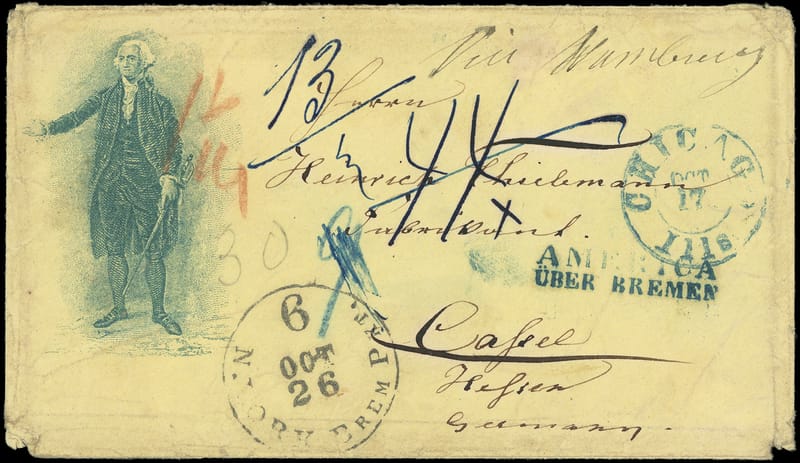 13
Via Hamburg
Herrn
Heinrich Thielemann
Fabrikant.
44
x
30
CHICAGO
OCT
17
Ills
AMERICA
ÜBER BREMEN
6
OCT
26
N. YORK BREM PKT.
Cassel
Hessen
Germany.